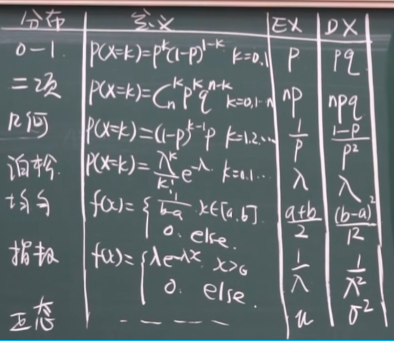 分布 定义 EX DX
0-1 P(X=k)=p^k(1-p)^{1-k} k=0,1 p pq
二项 P(X=k)=C_n^k p^k q^{n-k} k=0,1…n np npq
几何 P(X=k)=(1-p)^{k-1}p k=1,2… 1/p (1-p)/p²
泊松 P(X=k)=λ^k/k! e^{-λ} k=0,1… λ λ
均匀 f(x)={ 1/(b-a) x∈[a,b]. (a+b)/2 (b-a)²/12
0. else.
指数 f(x)={ λe^{-λx} x>0 1/λ 1/λ²
0. else.
正态 ---- u σ²